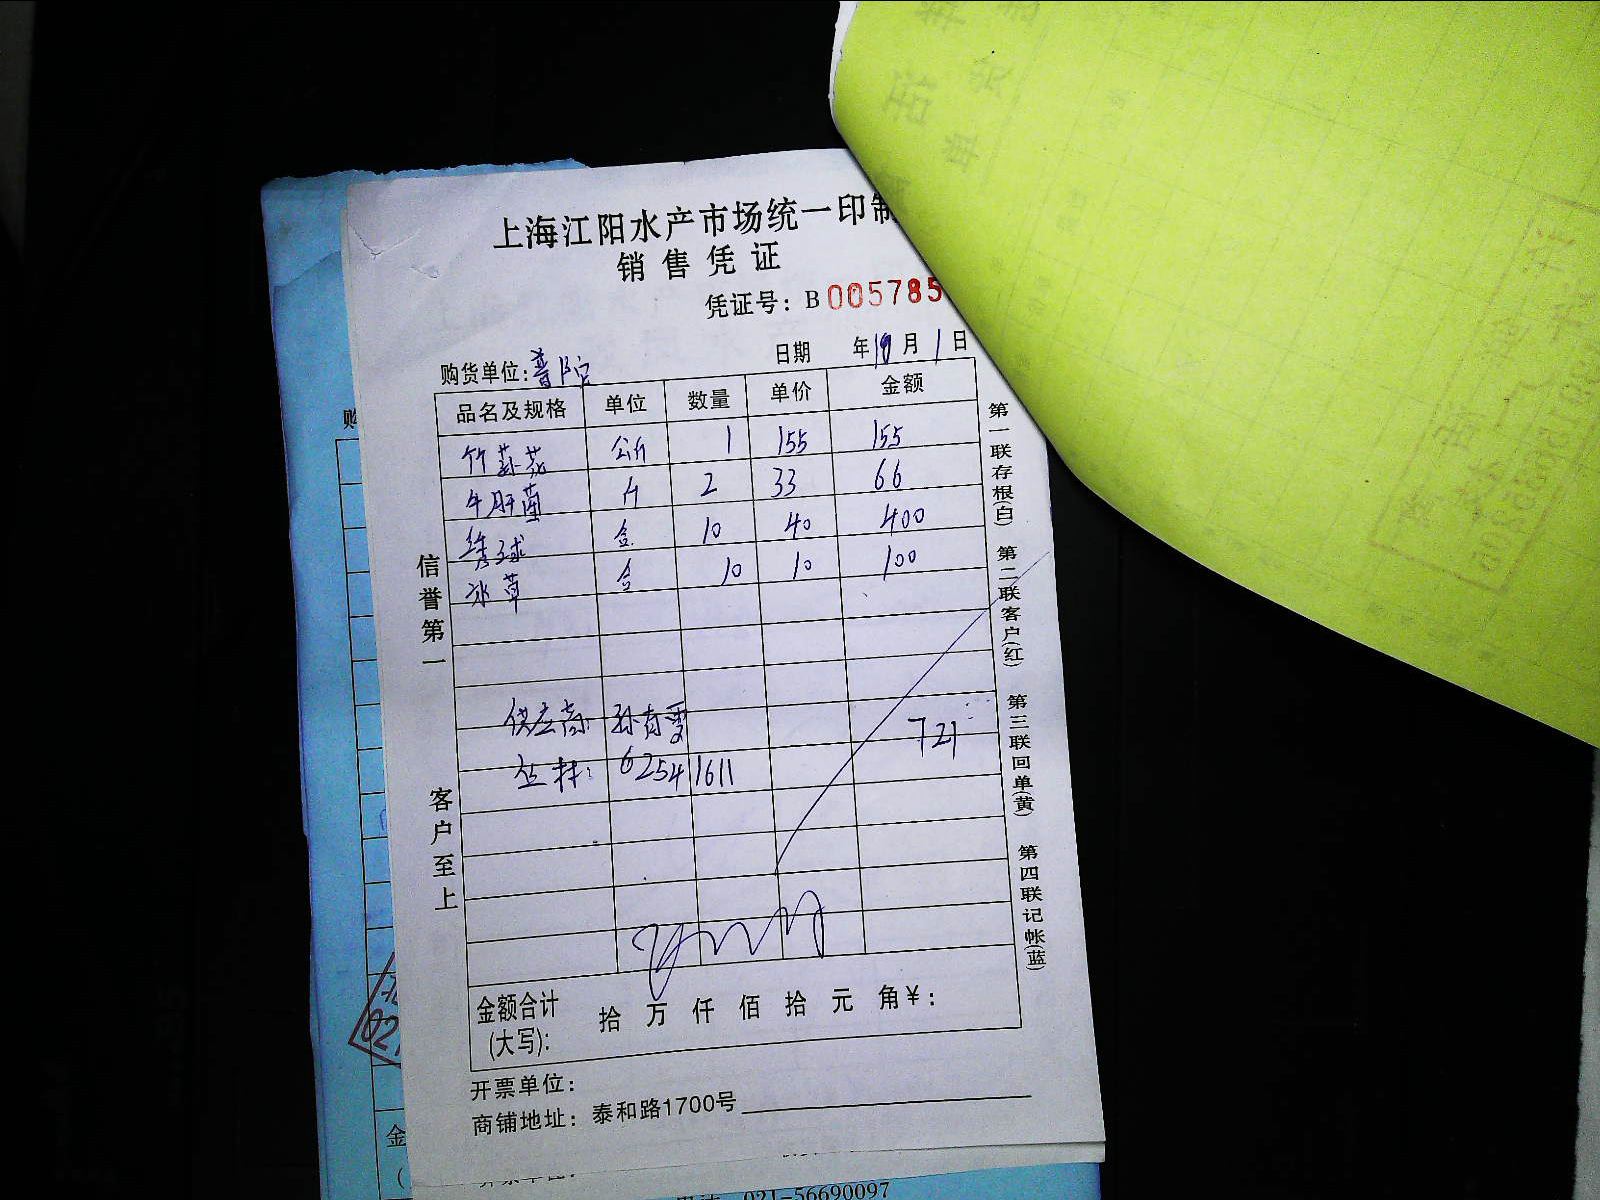 上海江阳水产市场统一印制
销售凭证
凭证号：B 005785
购货单位：普陀 日期 年10月1日
品名及规格 单位 数量 单价 金额
竹荪花 公斤 1 155 155
牛肝菌 斤 2 33 66
绣球 盒 10 40 400
冰草 盒 10 10 100
供应商 孙有雯
721
6254 1611
金额合计(大写)： 拾 万 仟 佰 拾 元 角 ¥：
开票单位：
商铺地址：泰和路1700号
信誉第一
客户至上
第一联存根(白)
第二联客户(红)
第三联回单(黄)
第四联记帐(蓝)
购
金
021-56690097